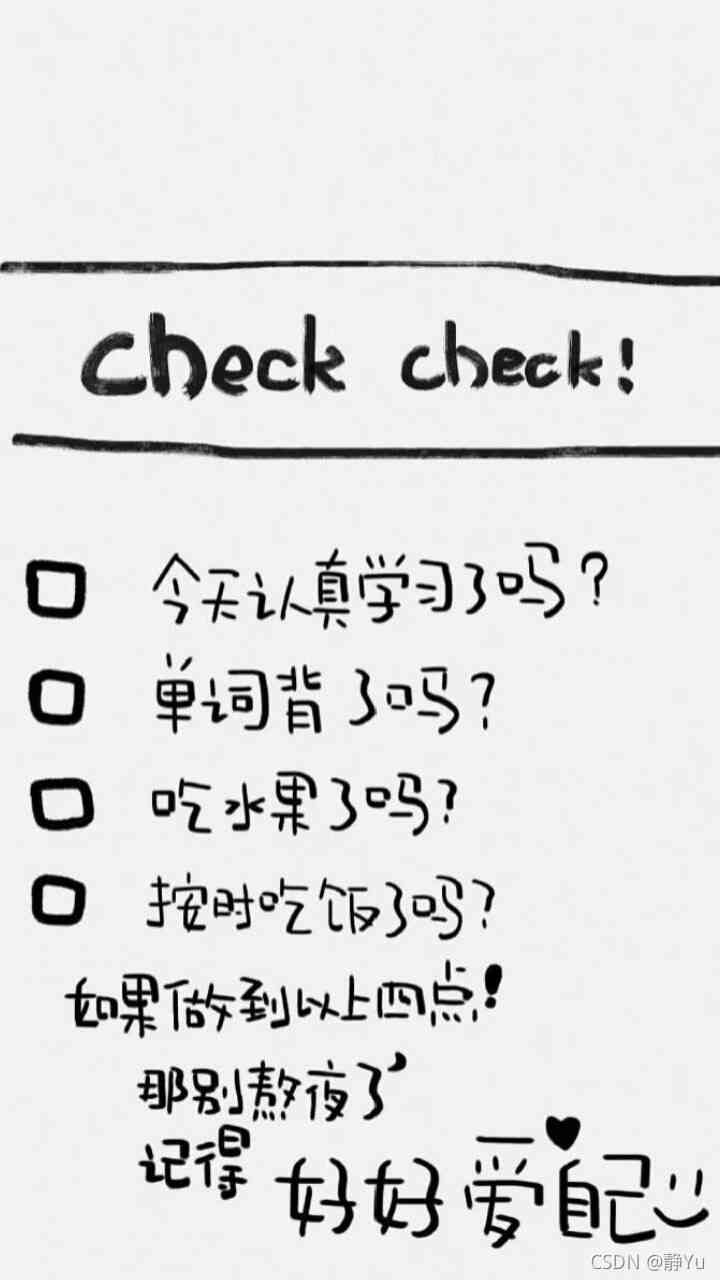 check check!
今天认真学习了吗?
单词背了吗?
吃水果了吗?
按时吃饭了吗?
如果做到以上四点!
那别熬夜了
记得 好好爱自己
CSDN @静Yu